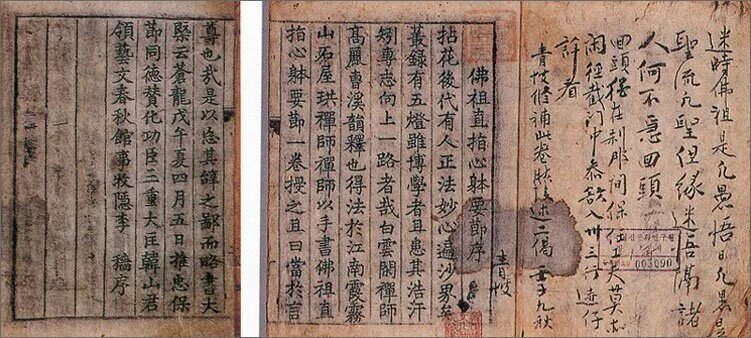 迷時佛祖是凡愚悟日凡愚是
聖流凡聖但緣迷悟隔諸
人何不急回頭
回頭 在刹那間保任
許看
青坡修補此卷 述二偈
003090
佛祖直指心躰要節序
青坡
拈花後代有人正法妙心遍沙界矣
叢録有五燈雖博學者且患其浩汗
矧專志向上一路者哉白雲閑禪師
高麗曹溪韻釋也得法於江南霞霧
山石屋珙禪師禪師以手書佛祖直
指心躰要節一卷授之且曰當於言
尊也我是以忘其辭之鄙而略書大
槩云蒼龍戊午夏四月五日推忠保
節同德賛化功臣三重大匡韓山君
領藝文春秋館事牧隱李 穡序